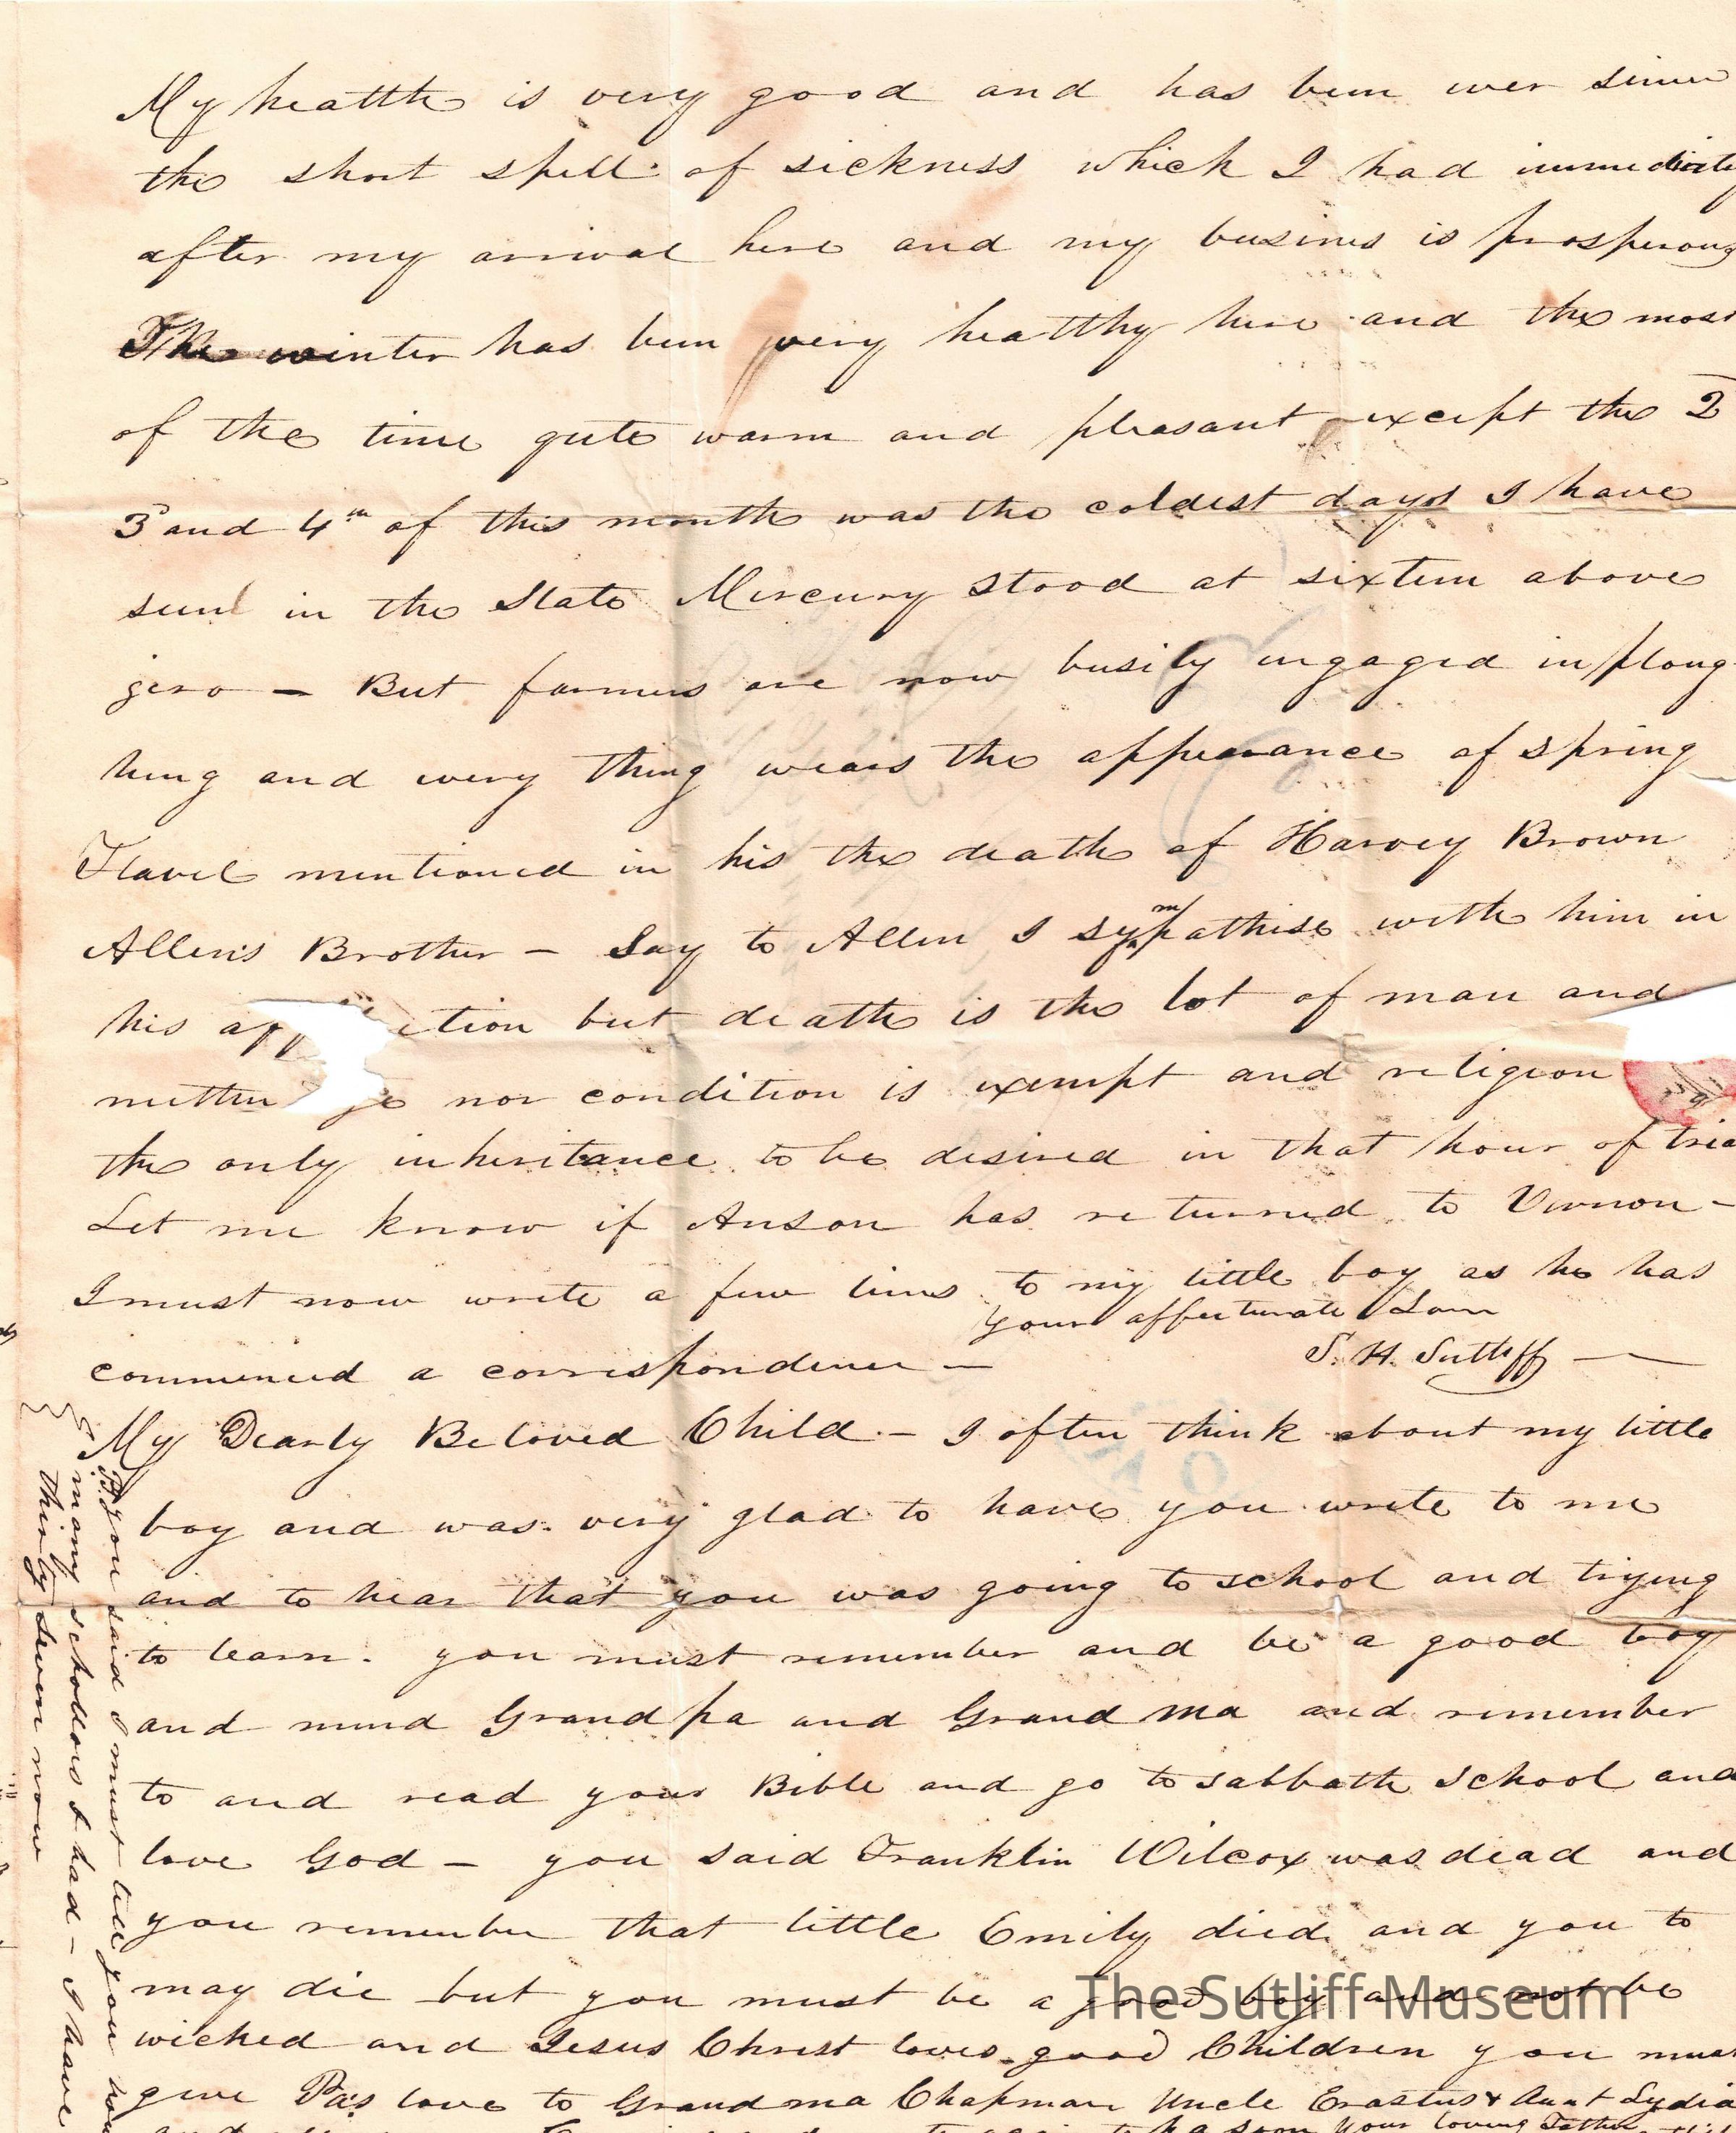 My healtth is very good and has been ever since
the short spell of sickness which I had immediately
after my arrival here and my busines is prosperous
The winter has been very healthy here and the most
of the time quite warm and pleasant except the 2
3 and 4th of this month was the coldest days I have
seen in the State Mercury stood at sixteen above
zero — But farmers are now busily engaged in ploug
hing and every thing wears the appearance of spring
Flavel mentioned in his the death of Harvey Brown
Allen's Brother — Say to Allen I sympathise with him in
his ction but death is the lot of man and
neither nor condition is exempt and religion
the only inheritance to be desired in that hour of tria
Let me know if Anson has returned to Vernon —
I must now write a few lines to my little boy as he has
commenced a correspondence —
your affectionate Son
S. H. Sutliff —
My Dearly Beloved Child — I often think about my little
boy and was very glad to have you write to me
and to hear that you was going to school and trying
to learn. you must remember and be a good boy
and mind Grand pa and Grand ma and remember
to and read your Bible and go to sabbath school and
love God — you said Franklin Wilcox was dead and
you remember that little Emily died and you to
may die but you must be a good boy and not be
wicked and Jesus Christ loves good Children you must
give Pa's love to Grand ma Chapman Uncle Erastus & Aunt Lydia
your loving Father
P.S. you said I must tell you how
many schollors I had — I have
thirty seven now
The Sutliff Museum